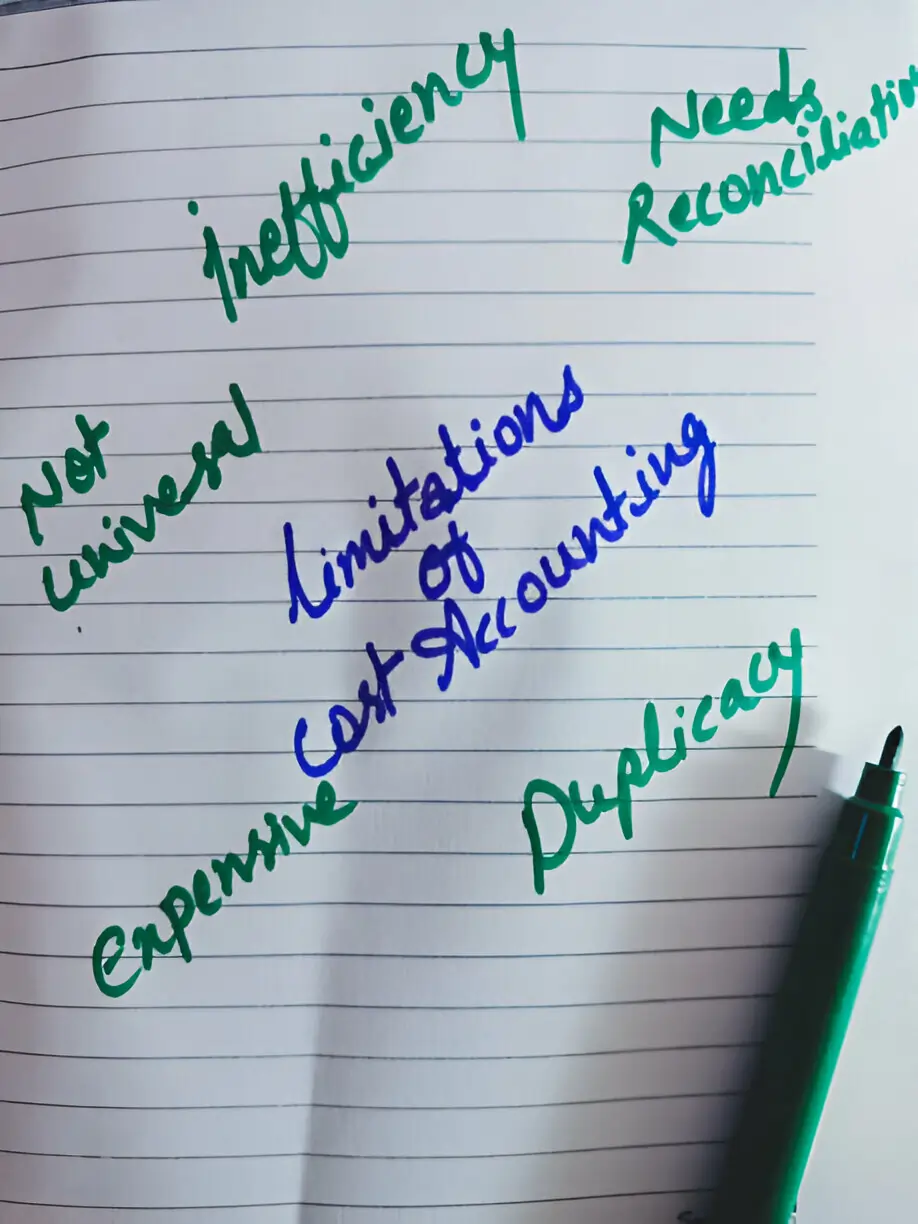 Inefficiency
Needs
Reconciliation
Not
univesal
Limitations
of
Cost Accounting
Duplicacy
Expensive